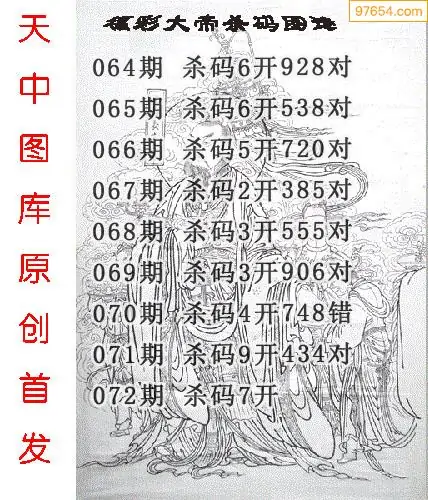 97654.com
天中图库原创首发
福彩大帝杀码图谜
064期 杀码6开928对
065期 杀码6开538对
066期 杀码5开720对
067期 杀码2开385对
068期 杀码3开555对
069期 杀码3开906对
070期 杀码4开748错
071期 杀码9开434对
072期 杀码7开